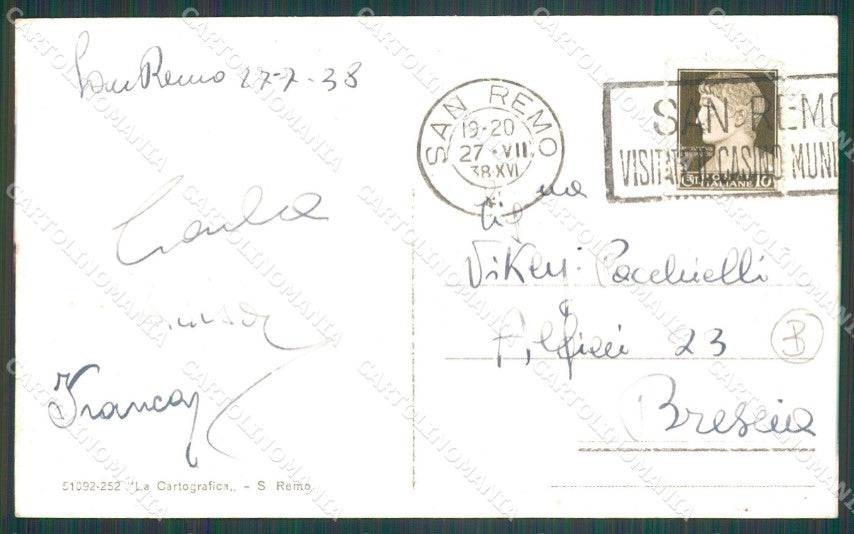 San Remo 27-7-38
SAN REMO
19-20
27·VII
38·XVI
SAN REMO
VISITATE IL CASINO MUNI
POSTE ITALIANE 10
Carla
Luisa
Franca
Sig.na
Vikey Pacchielli
23
B
Brescia
51092-252 "La Cartografica" - S Remo
CARTOLINOMANIA